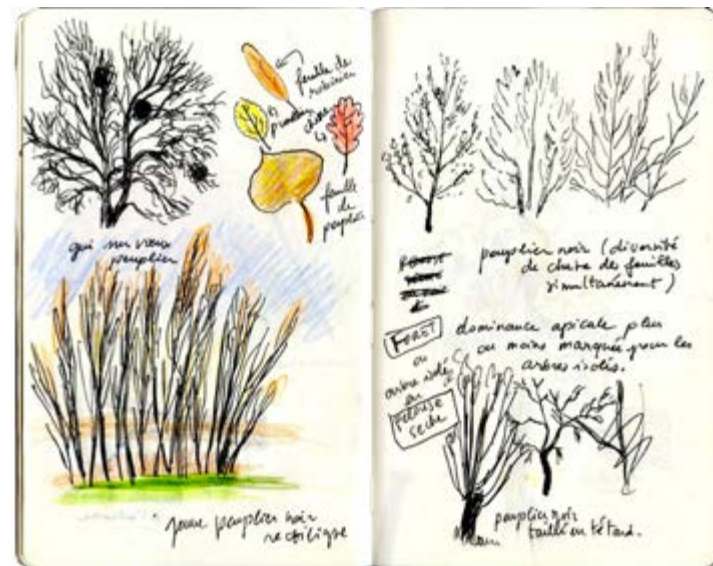 feuille de
robinier
prunellier
chêne
feuille
de
peuplier
gui sur vieux
peuplier
jeune peuplier noir
rectiligne
peuplier noir (diversité
de chute des feuilles
simultanément)
FORÊT
ou
arbre isolé
en
PELOUSE
SÈCHE
dominance apicale plus
ou moins marquée pour les
arbres isolés.
peuplier noir
taillé en têtard.